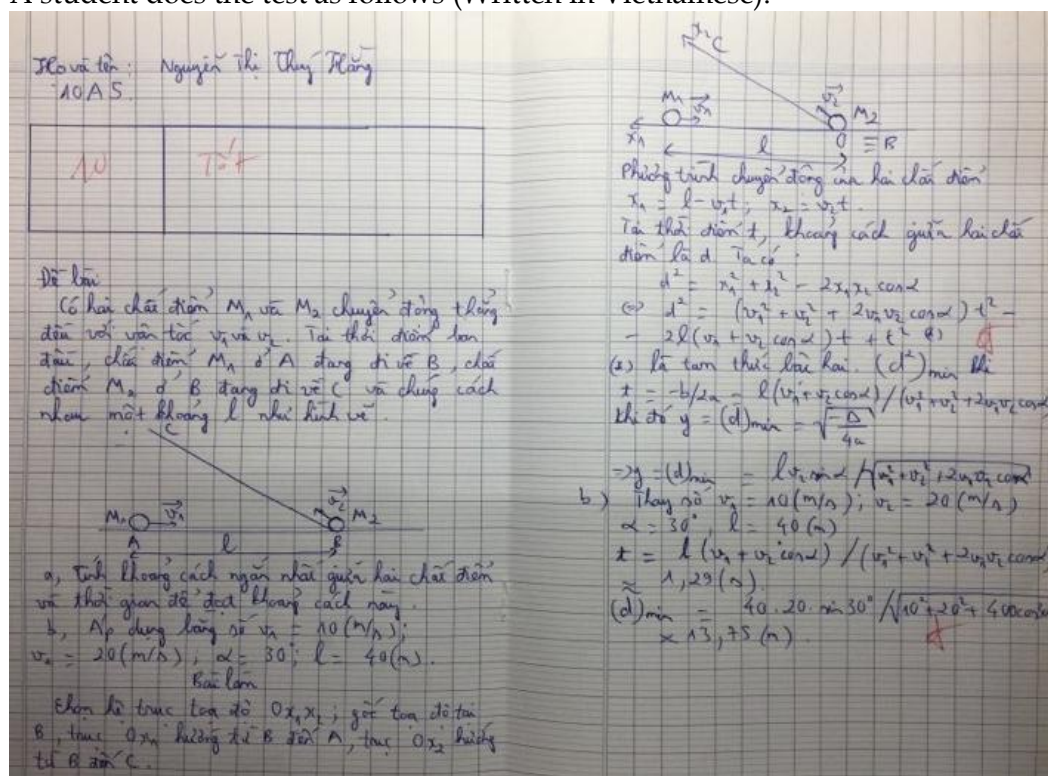 A student does the test as follows (Written in Vietnamese):
Họ và tên: Nguyễn Thị Thuý Hằng
10A5
10 Tốt
Đề bài
Có hai chất điểm M₁ và M₂ chuyển động thẳng
đều với vận tốc v₁ và v₂. Tại thời điểm ban
đầu, chất điểm M₁ ở A đang đi về B, chất
điểm M₂ ở B đang đi về C và chúng cách
nhau một khoảng l như hình vẽ.
C
M₁ v₁ v₂ M₂
A l B
a, Tính khoảng cách ngắn nhất giữa hai chất điểm
và thời gian để đạt khoảng cách này.
b, Áp dụng bằng số v₁ = 10 (m/s);
v₂ = 20 (m/s), α = 30°; l = 40 (m).
Bài làm
Chọn hệ trục toạ độ Ox₁x₂; gốc toạ độ tại
B, trục Ox₁ hướng từ B đến A, trục Ox₂ hướng
từ B đến C.
x₂ C
M₁ v₁ v₂ M₂
x₁ l O ≡ B
Phương trình chuyển động của hai chất điểm
x₁ = l - v₁t; x₂ = v₂t.
Tại thời điểm t, khoảng cách giữa hai chất
điểm là d. Ta có:
d² = x₁² + x₂² - 2x₁x₂ cosα
⇔ d² = (v₁² + v₂² + 2v₁v₂ cosα) t² -
- 2l(v₁ + v₂ cosα)t + l² (*)
(*) là tam thức bậc hai. (d²)min khi
t = -b/2a = l(v₁ + v₂ cosα) / (v₁² + v₂² + 2v₁v₂ cosα)
khi đó y = (d)min = √(-Δ/4a)
⇒ y = (d)min = l v₂ sinα / √(v₁² + v₂² + 2v₁v₂ cosα)
b) Thay số v₁ = 10 (m/s); v₂ = 20 (m/s)
α = 30°, l = 40 (m)
t = l (v₁ + v₂ cosα) / (v₁² + v₂² + 2v₁v₂ cosα)
≈ 1,29 (s).
(d)min = 40 . 20 . sin 30° / √(10² + 20² + 400cos30
≈ 13,75 (m).